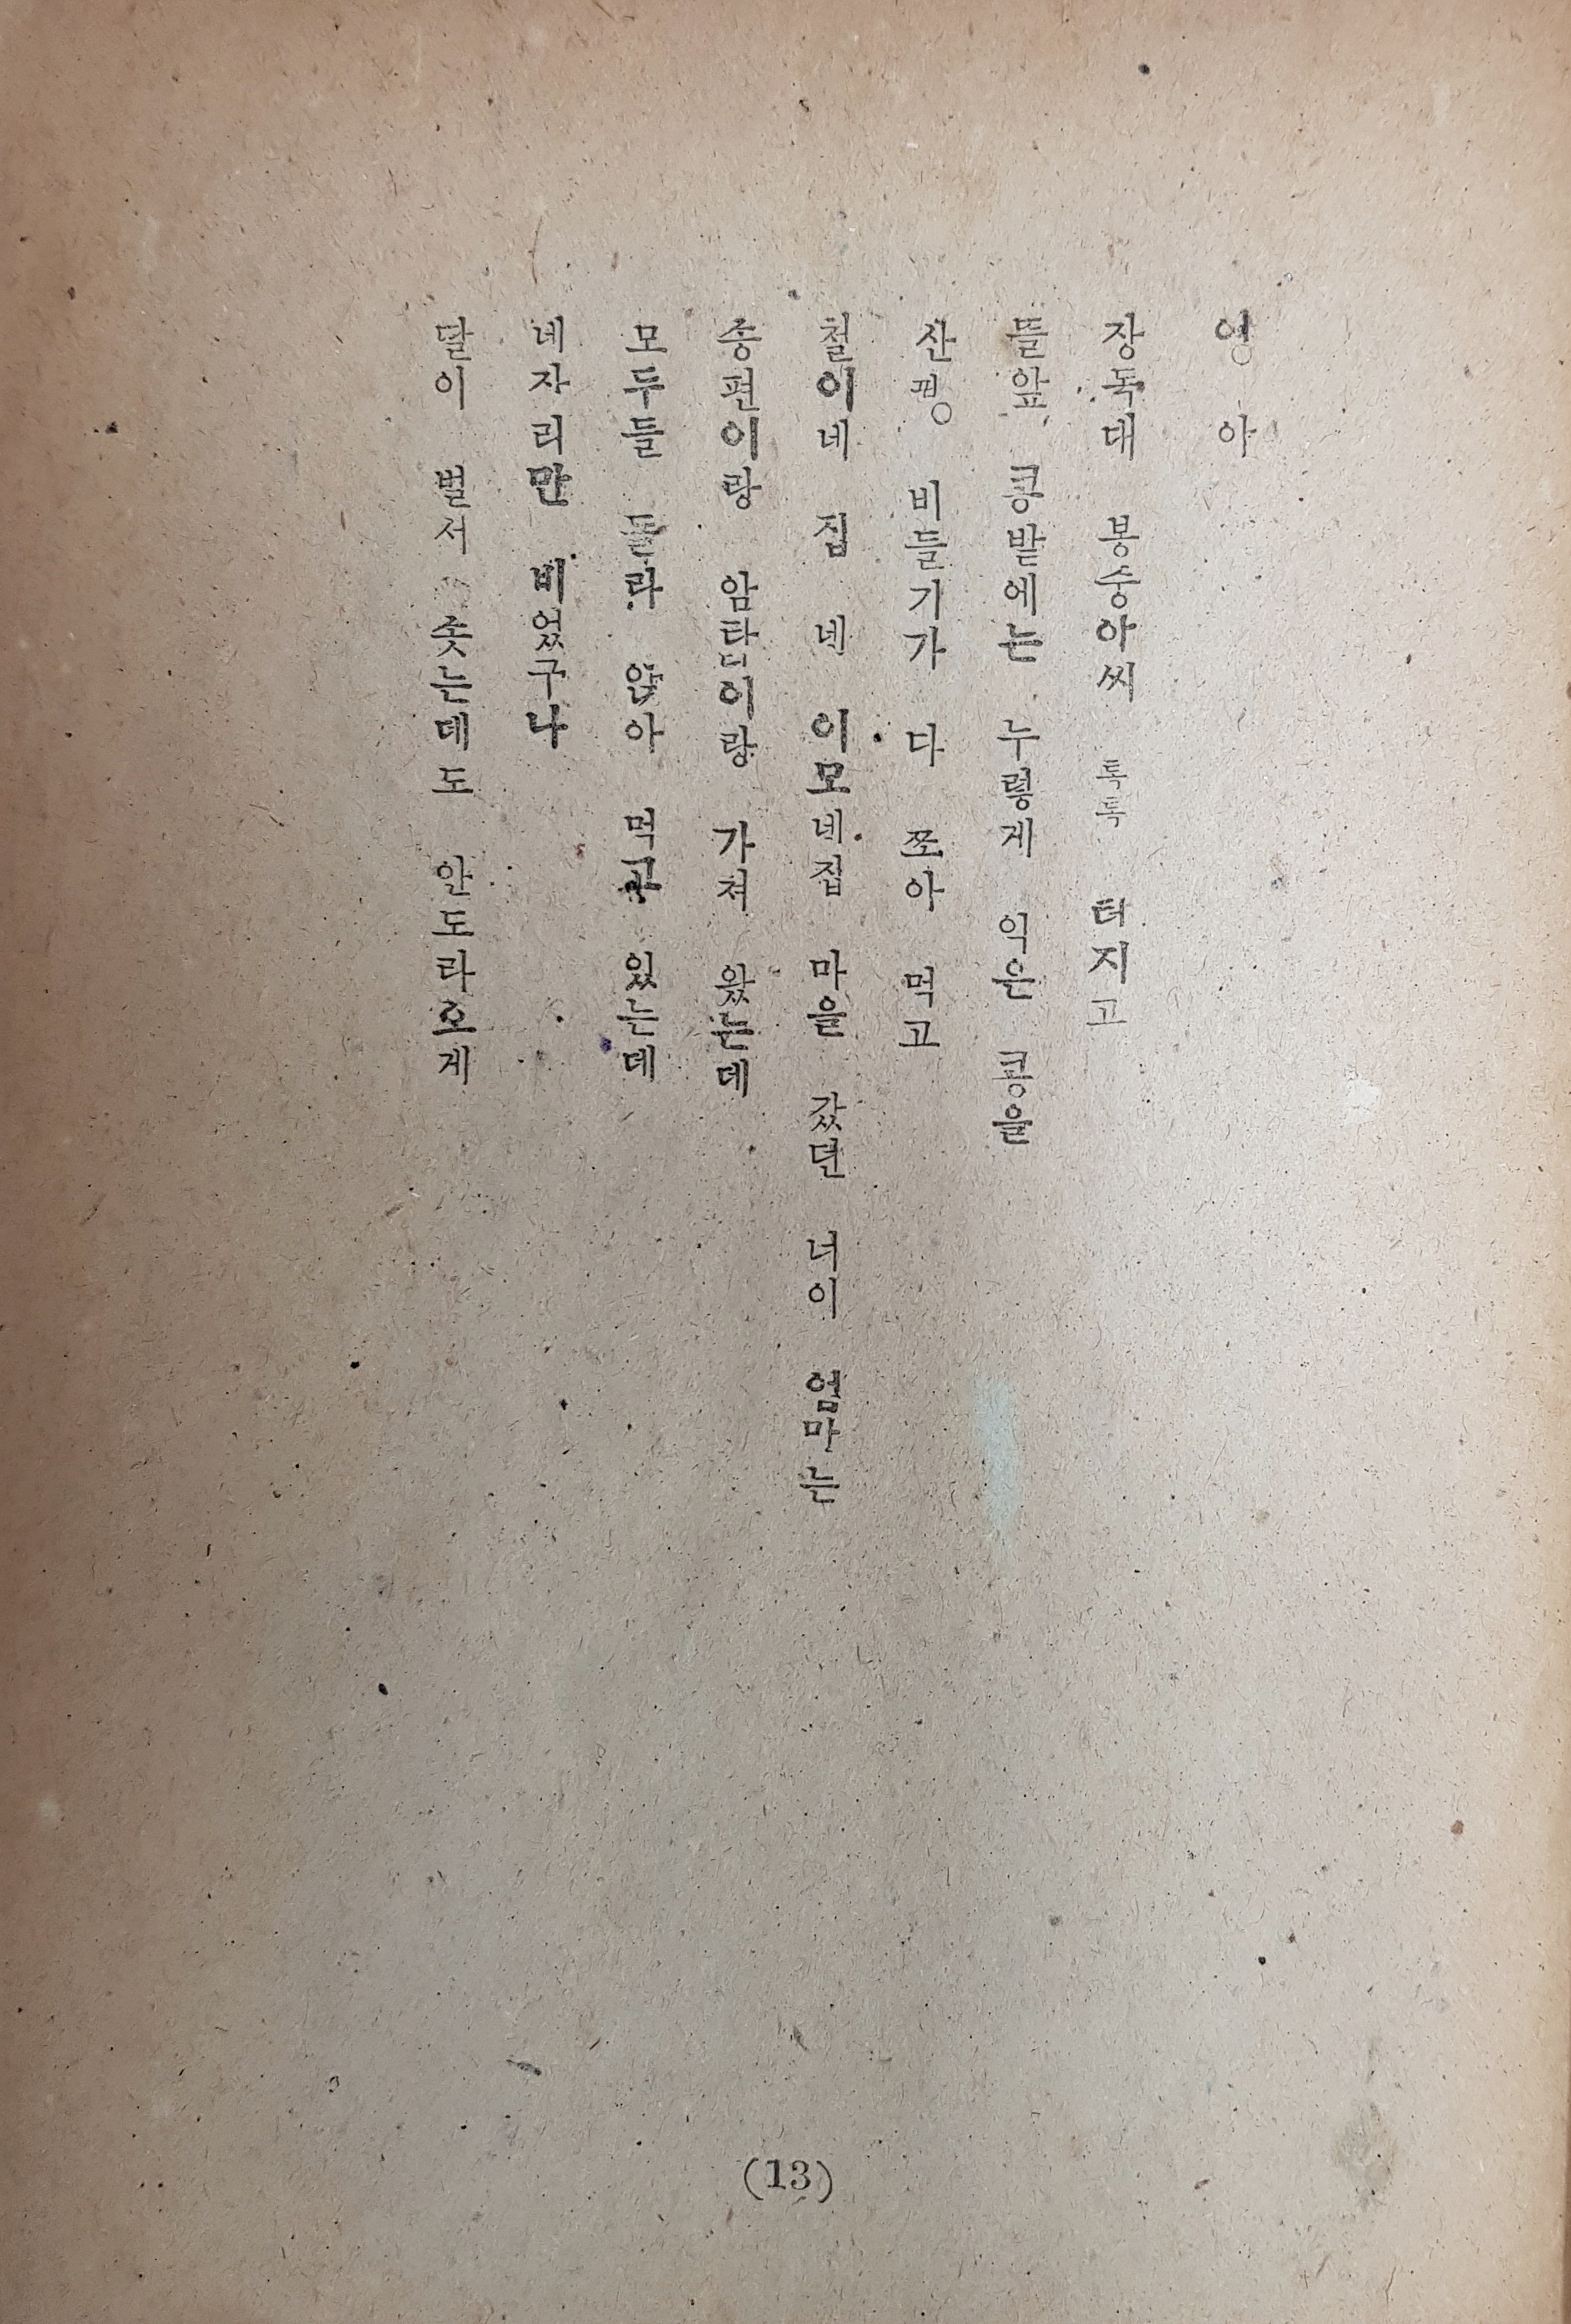 영 아
장독대 봉숭아씨 톡톡 터지고
뜰앞 콩밭에는 누렇게 익은 콩을
산꿩 비들기가 다 쪼아 먹고
철이네 집 넨 이모네집 마을 갔던 너이 엄마는
송편이랑 암탉이랑 가져 왔는데
모두들 둘라 앉아 먹고 있는데
네자리만 비었구나
달이 벌서 솟는데도 안도라오게
(13)